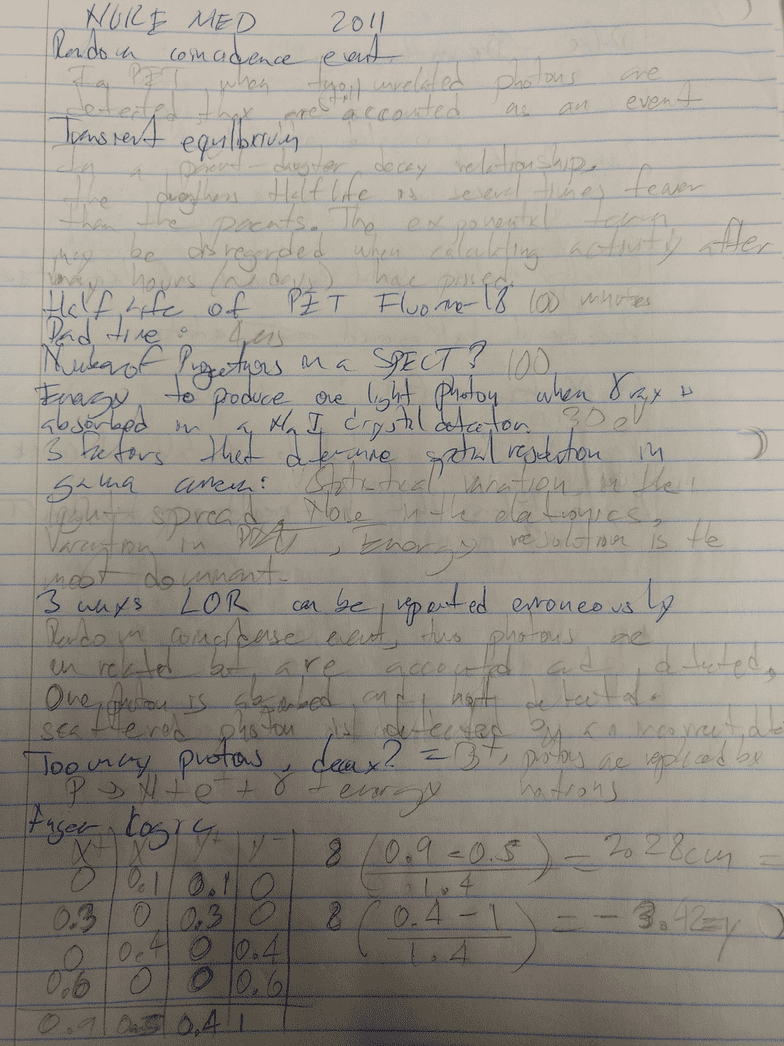 NUKE MED 2011
Random coincidence event
In PET, when two unrelated photons are
detected they are still accounted as an event
Transient equilibrium
In a parent-daugter decay relationship.
The daughters Half Life is several times fewer
than the parents. The exponential term
may be disregarded when calculating activity after
many hours (~ days) have passed.
Half Life of PET Fluorine-18 100 minutes
Dead time: 4 us
Number of Projections in a SPECT? 100
Energy to produce one light photon when γ ray is
absorbed in a NaI crystal detection. 30 eV
3 factors that determine spatial resolution in
gama camera: Statistical variation in the
light spread, Noise in the electronics,
Variation in , Energy resolution is the
most dominant.
3 ways LOR can be reported erroneously
Random coincidense event, two photons are
unrelated but are accounted and detected,
One photon is absorbed and not detected.
scattered photon is detected by an incorrect
Too many protons, decay? = β+, protons are replaced by
P → N + e+ + γ + energy nutrons
Anger Logic
X+ X- Y+ Y-
0 0.1 0.1 0
0.3 0 0.3 0
0 0.4 0 0.4
0.6 0 0 0.6
0.9 0.5 0.4 1
8 (0.9 - 0.5 / 1.4) = 2.28cm =
8 (0.4 - 1 / 1.4) = - 3.42 = y